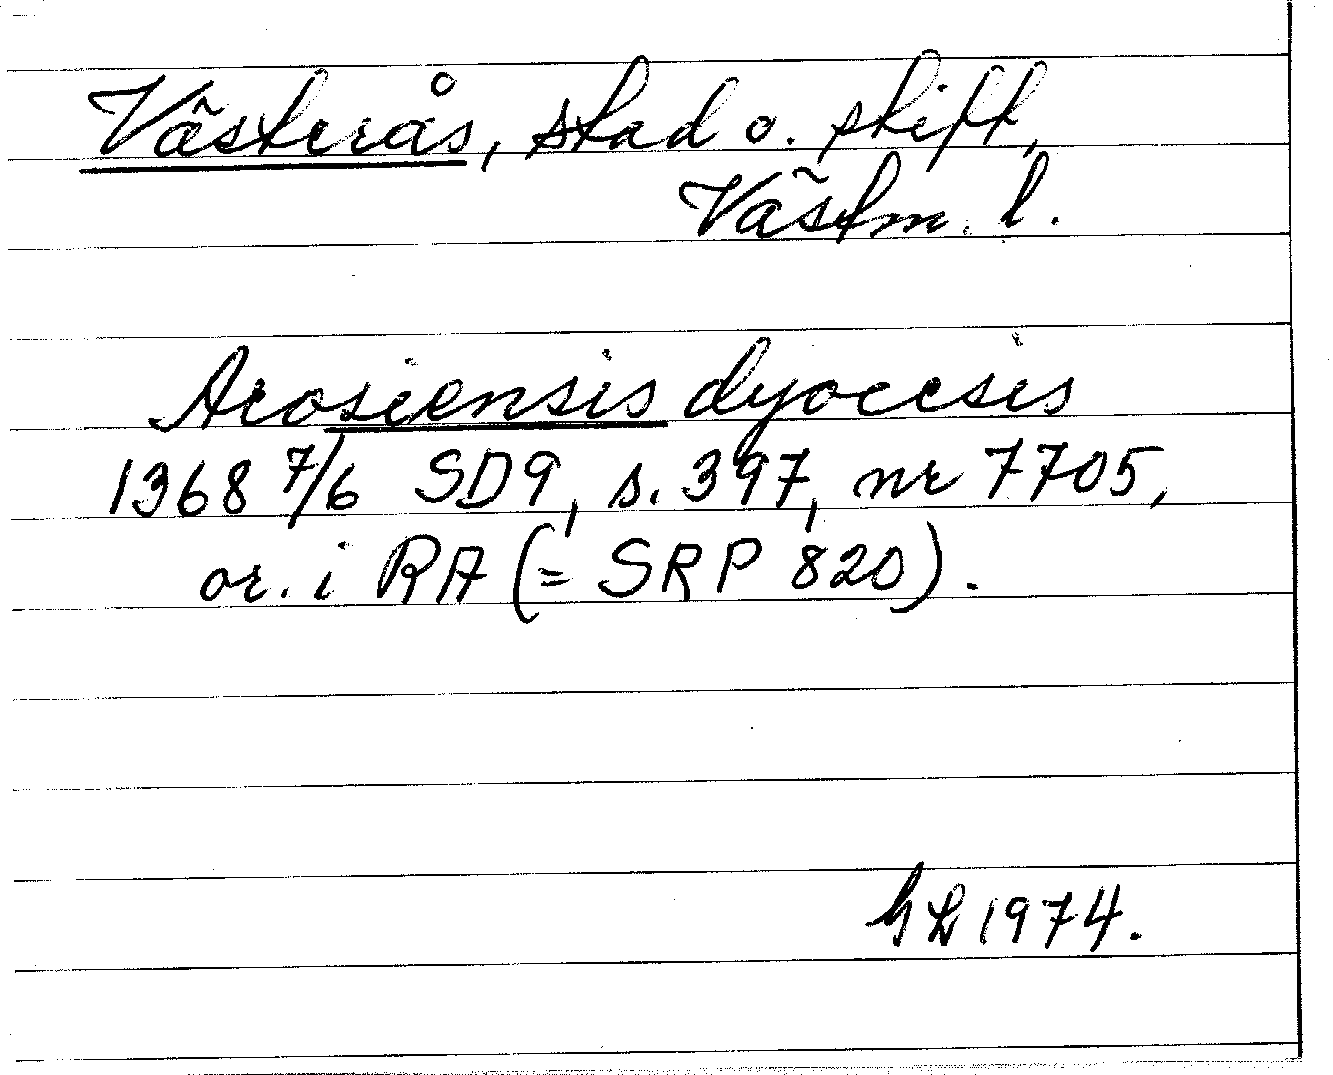 Västerås, stad o. stift,
Västm. l.
Arosiensis dyocesis
1368 7/6 SD9, s. 397, nr 7705,
or. i RA (= SRP 820).
1974.